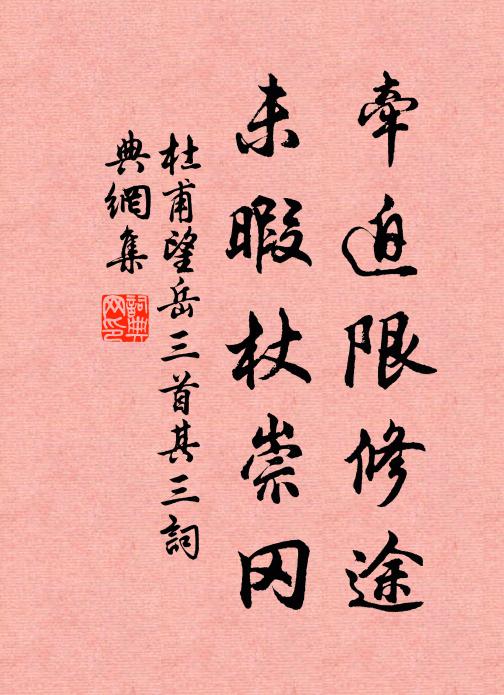 牵迫限修途
未暇杖崇冈
杜甫望岳三首其三詞
典網集
詞典网印